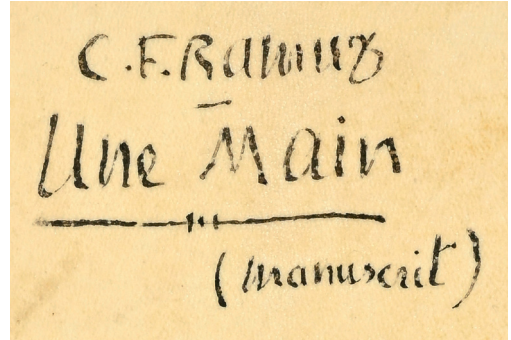 C.F. Ramuz
Une Main
(manuscrit)